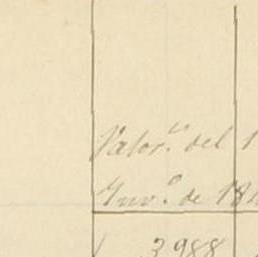 Valor.ⁿ del 1
Ynv.º de 18
3988